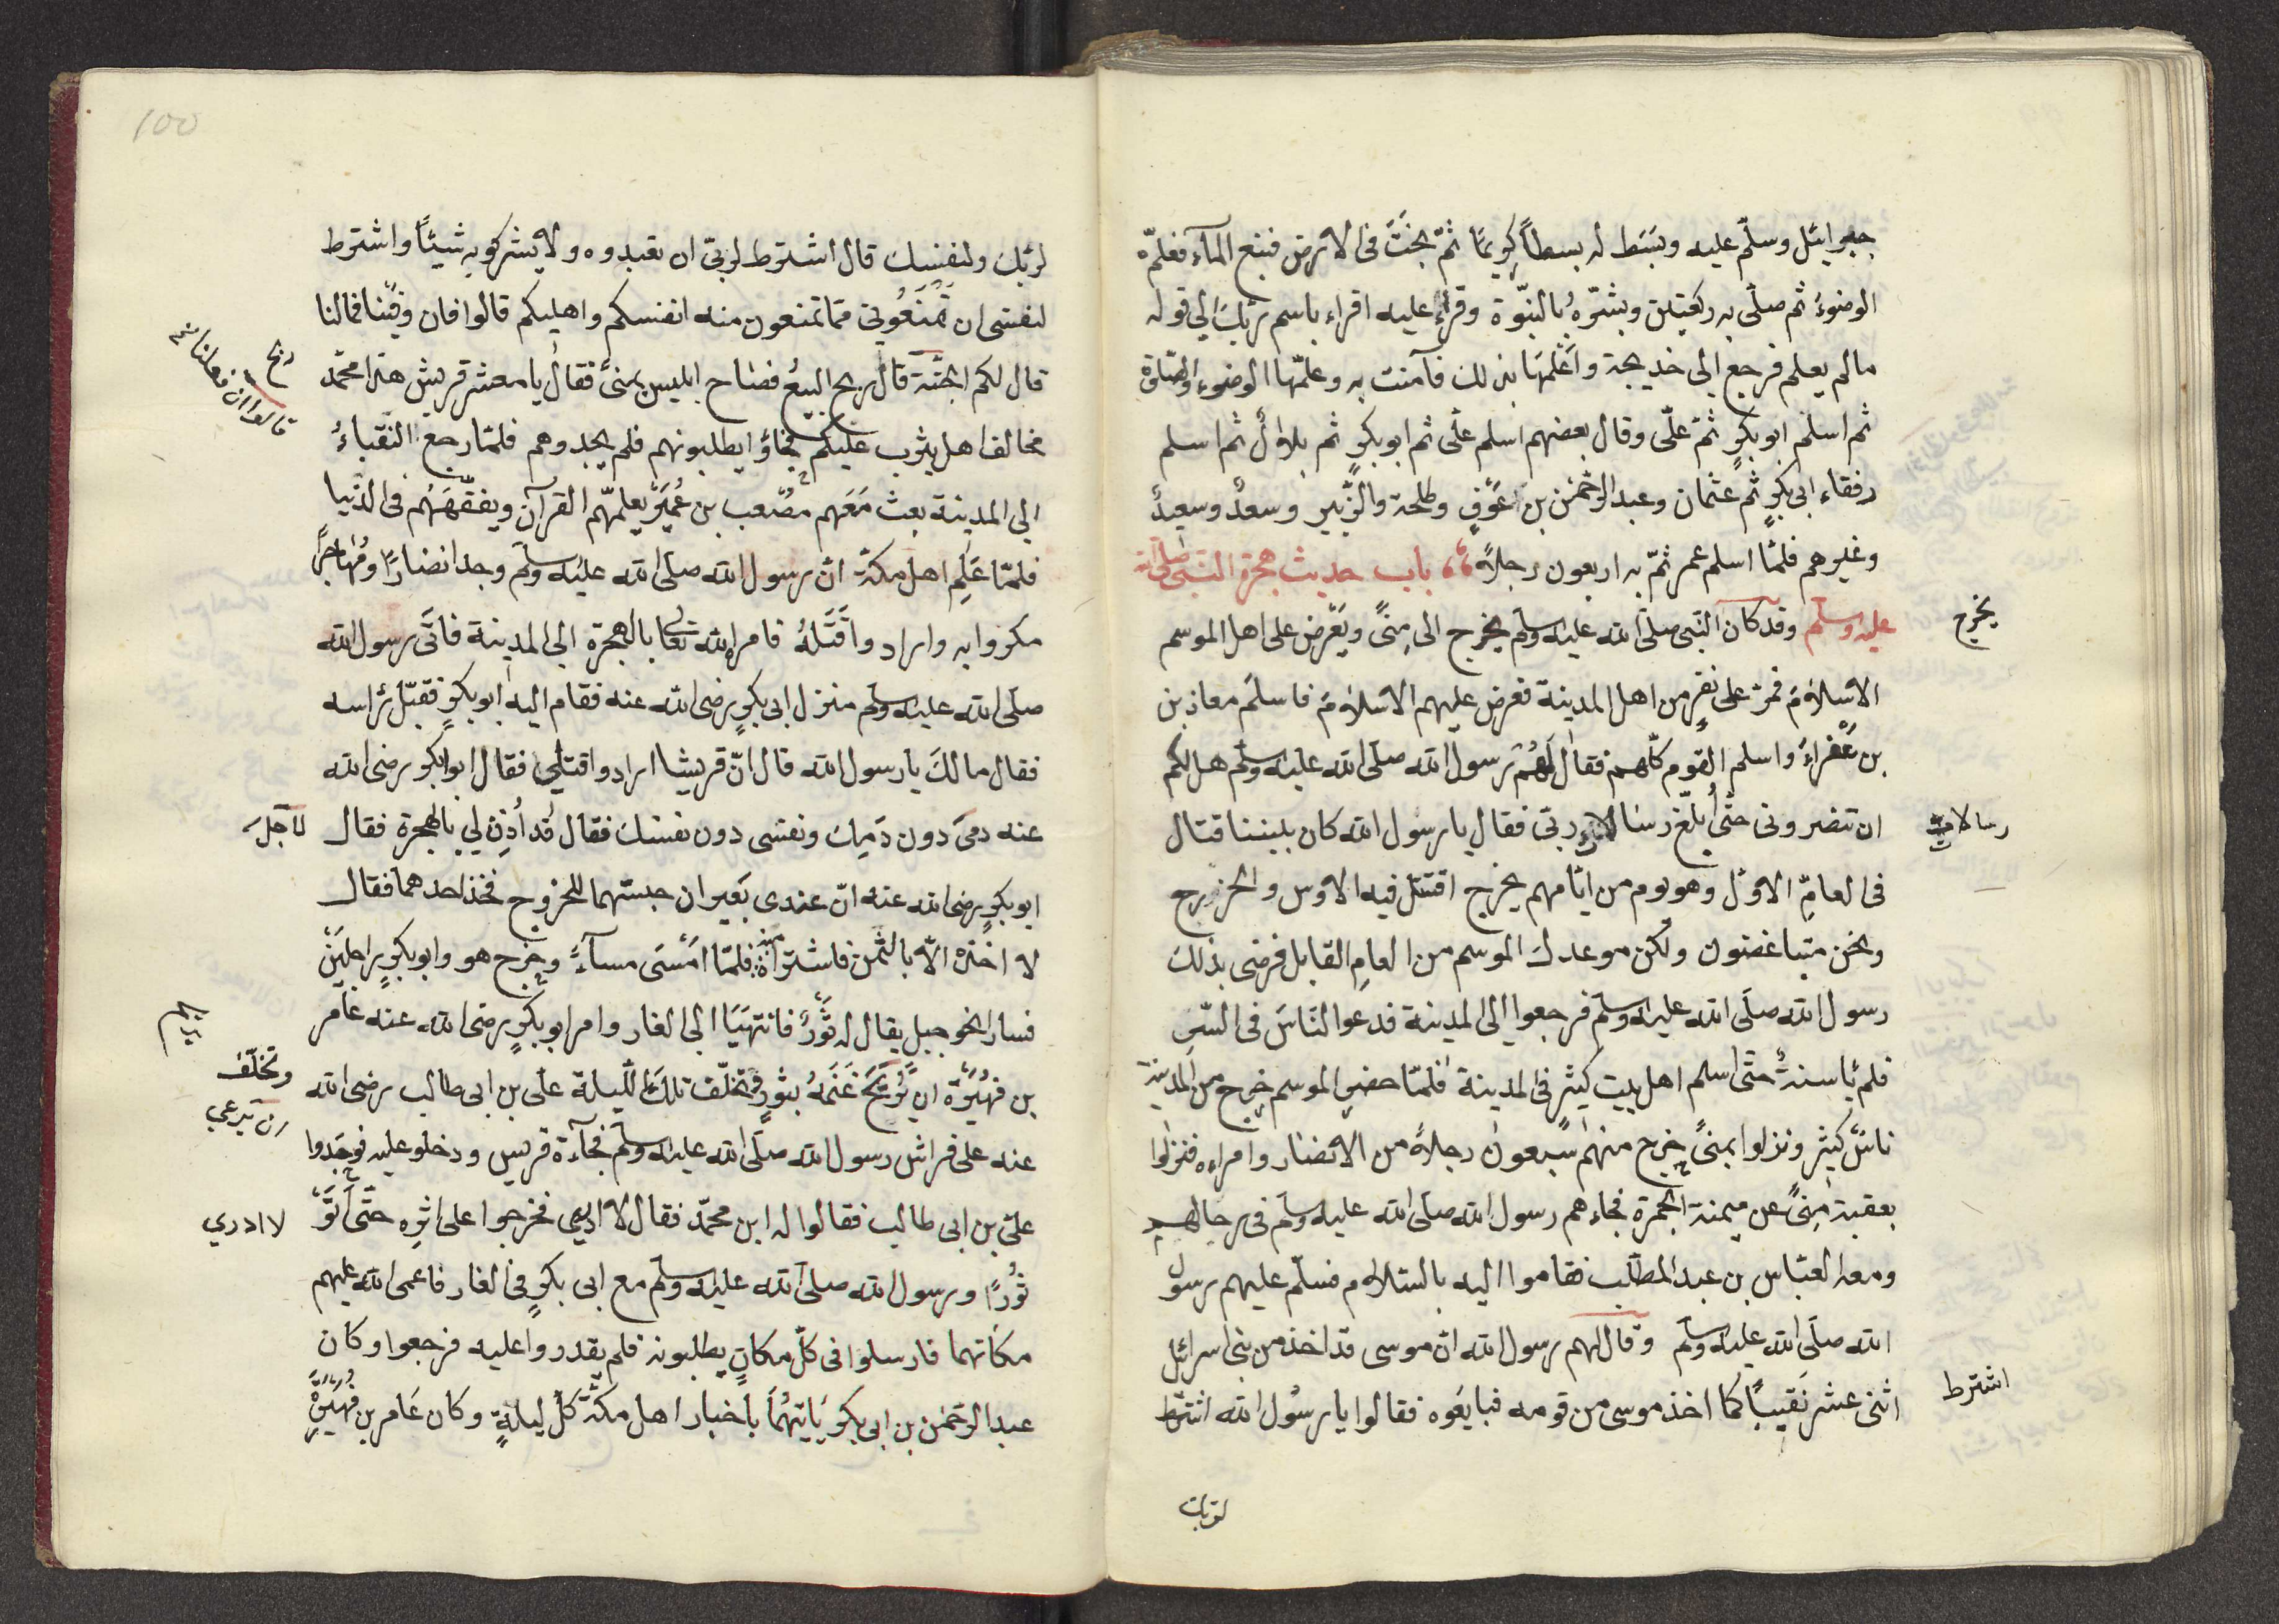 جبرايئل وسلّم عليه وبَسَط له بسطاً كريمًا ثمّ بحَثَ فى الارض فنبع المآء فعلمّه
الوضوءَ ثم صلّى به ركعتين وبشّرهُ بالنبّوة وقراء عليه اقراء باسم ربّك الى قوله
مالم يعلم فرجع الى خديجة واَعْلمَهَا بذلك فآمنت به وعلمّها الوضوء والصّلوة
ثم اسلم ابو بكرٍ ثمّ علّى وقال بعضهم اسلم علّى ثم ابو بكرٍ ثم بلالٌ ثم اسلم
رفقاء ابى بكرٍ ثم عثمان وعبد الرحمٰن بن عَوْفٍ وطلحة والزّبير وسعدٌ وسعيدٌ
وغيرهم فلمّا اسلم عمر ثمّ به اربعون رجلاً باب حديث هجرة النبّى صلّى الله
عليه وسلّم وقد كان النبى صلّى الله عليه وسلّم يخرج الى مِنىً ويَعْرض على اهل الموسم
يخرج
الاسْلامَ فمرّ على نفرٍ من اهل المدينة فعرض عليهم الاسْلامَ فاسلَم معاذ بن
بن عَفْراءَ واسلم القوم كلّهم فقال لَهُم رسول الله صلّى الله عليه وسلّم هل لكم
ان تنصرونى حتّى اُبلّغ رسالات ربّى فقال يا رسول الله كان بيننا قتال
رسالات
فى العامِّ الاوّل وهو يوم من ايّامهم يخرج اقتتل فيه الاوس والخزرج
ونحن متباغضون ولكن موعدك الموسم من العامِ القابل فرضى بذلك
رسول الله صلّى الله عليه وسلّم فرجعوا الى المدينة فدعوا النّاسَ فى السّر
فلم ئاسنةٌ حتّى اسلم اهل بيت كثير فى المدينة فلمّا حضر الموسم خرج من المدينة
ناسٌ كثير ونزلوا بمنىً خرج منهم سبعون رجلاً من الانصار وامراءه فنزلوا
بعقبة مِنىً عن ميمنة الجمرة فجاءهم رسول الله صلّى الله عليه وسلّم فى رحالهم
ومعه العبّاس بن عبد المطلّب فقاموا اليه بالسّلام فسلّم عليهم رسول
الله صلّى الله عليه وسلّم وقال لهم رسول الله انّ موسى قد اخذ من بنى اسرائل
اثنى عشر نَقيبًا كما اخذ موسى من قومه فبايَعوه فقالوا يا رسُول الله اشترط
اشترط
لربك
100
لربّك ولنفسك قال اشترط لربّى ان تعبدوه ولا يشركو به شيئًا واشترط
لنفسى ان تَمْنَعُونى ممّا تمنعون منه انفسكم واهليكم قالوا فان وفّينا فمالنا
قال لكم الجنّة قال ربح البيعُ فصاح ابليس بمنىً فقال يا معشر قريش هذا محمّد
ربح
قالوا ان فعلنا
مخالف اهل يثرب عليكم فجاؤا يطلبونهم فلم يجدوهم فلمّا رجع النّقباءُ
الى المدينة بعث مَعَهم مصْعب بن عُمَيْر يعلمّهم القرآن ويفقّهَهُم فى الدّنيا
فلمّا عَلِم اهل مكّة انّ رسول الله صلى الله عليه وسلّم وجد انصارًا ومُهاجرًا
مكروا به وارادوا قَتْلهُ فامره الله تعالى بالهجرة الى المدينة فاتَى رسول الله
صلّى الله عليه وسلّم منزل ابى بكرٍ رضى الله عنه فقام اليه ابو بكرٍ فقبّل رأسه
فقال مالكَ يا رسول الله قال انّ قريشا ارادوا قتلى فقال ابو بكر رضى الله
عنه دمى دون دَمِك ونفسى دون نفسك فقال قد اُذِن لى بالهجرة فقال
لاجل
ابو بكرٍ رضى الله عنه انّ عندى بَعيران حبستهما للخروج فخذ احدهما فقال
لا اخذه الّا بالثمن فاشتراه منه فلمّا اَمْسَى مساءً وخرج هو وابو بكرٍ راجلَيْن
فسار الخو جبل يقال له ثَوْرٌ فانتهَيَا الى الغار وامر ابو بكرٍ رضى الله عنه عامر
بن فهُيَرْة ان يُرِيحَ غَنَمهُ بثورٍ وتخلّف تلك اللّيلة علّى بن ابى طالب رضى الله
يريح
وتخلّف
ان يرعي
عنه على فراش رسول الله صلّى الله عليه وسلّم فجآءة قريس ودخلو عليه فوجَدوا
علىّ بن ابى طالب فقالوا له اين محمّد فقال لا ادرى فخرجوا على اثرِه حتّى اَتَوْ
لا ادري
ثوْرًا ورسول الله صلّى الله عليه وسلّم مع ابى بكرٍ فى الغار فاعمى الله عليهم
مكانهما فارسلوا فى كلّ مكانٍ يطلبونه فلم يقدروا عليه فرجعوا وكان
عبد الرحمٰن بن ابى بكر يَاتيهُمَا باخبار اهل مكّة كلّ ليلةٍ وكان عَامر بن فُهَيْرَةَ